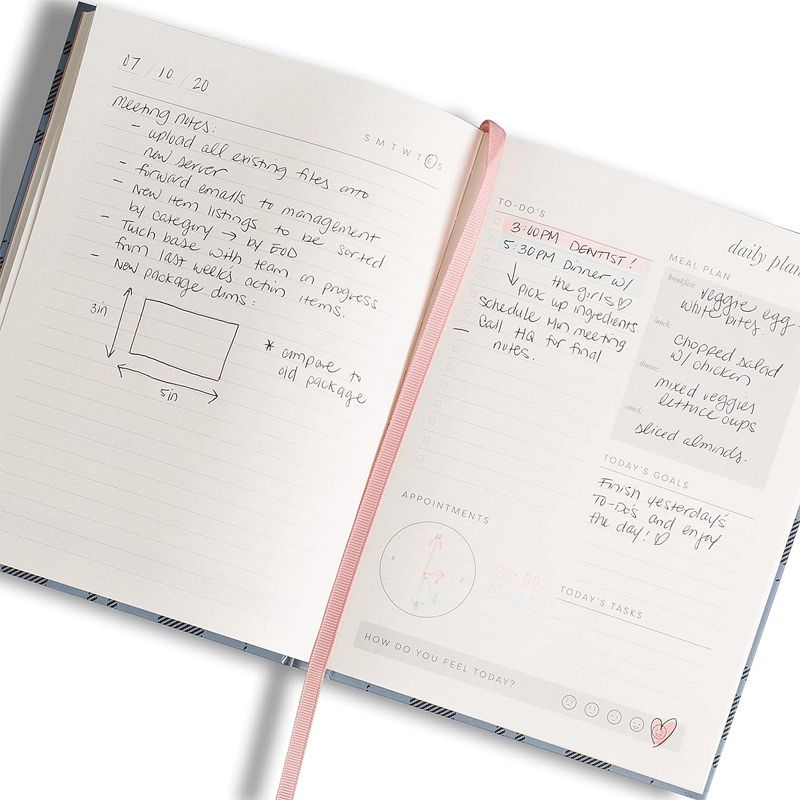 07 / 10 / 20
S M T W T F S
Meeting notes:
- upload all existing files onto
new server
- forward emails to management
- New item listings to be sorted
by category → by EOD
- Touch base with team on progress
from last week's action items.
- New package dims:
3in
5in
* compare to
old package
daily plan
TO-DO'S
3:00PM DENTIST!
5:30PM Dinner w/
the girls ♡
↓ pick up ingredients
schedule Mon meeting
- Call HQ for final
notes.
MEAL PLAN
breakfast:
veggie egg
white bites.
lunch:
chopped salad
w/ chicken
dinner:
mixed veggies
lettuce cups
snack:
sliced almonds.
TODAY'S GOALS
Finish yesterday's
To-Do's and enjoy
the day! ♡
APPOINTMENTS
12
3
6
9
3:00
TODAY'S TASKS
HOW DO YOU FEEL TODAY?